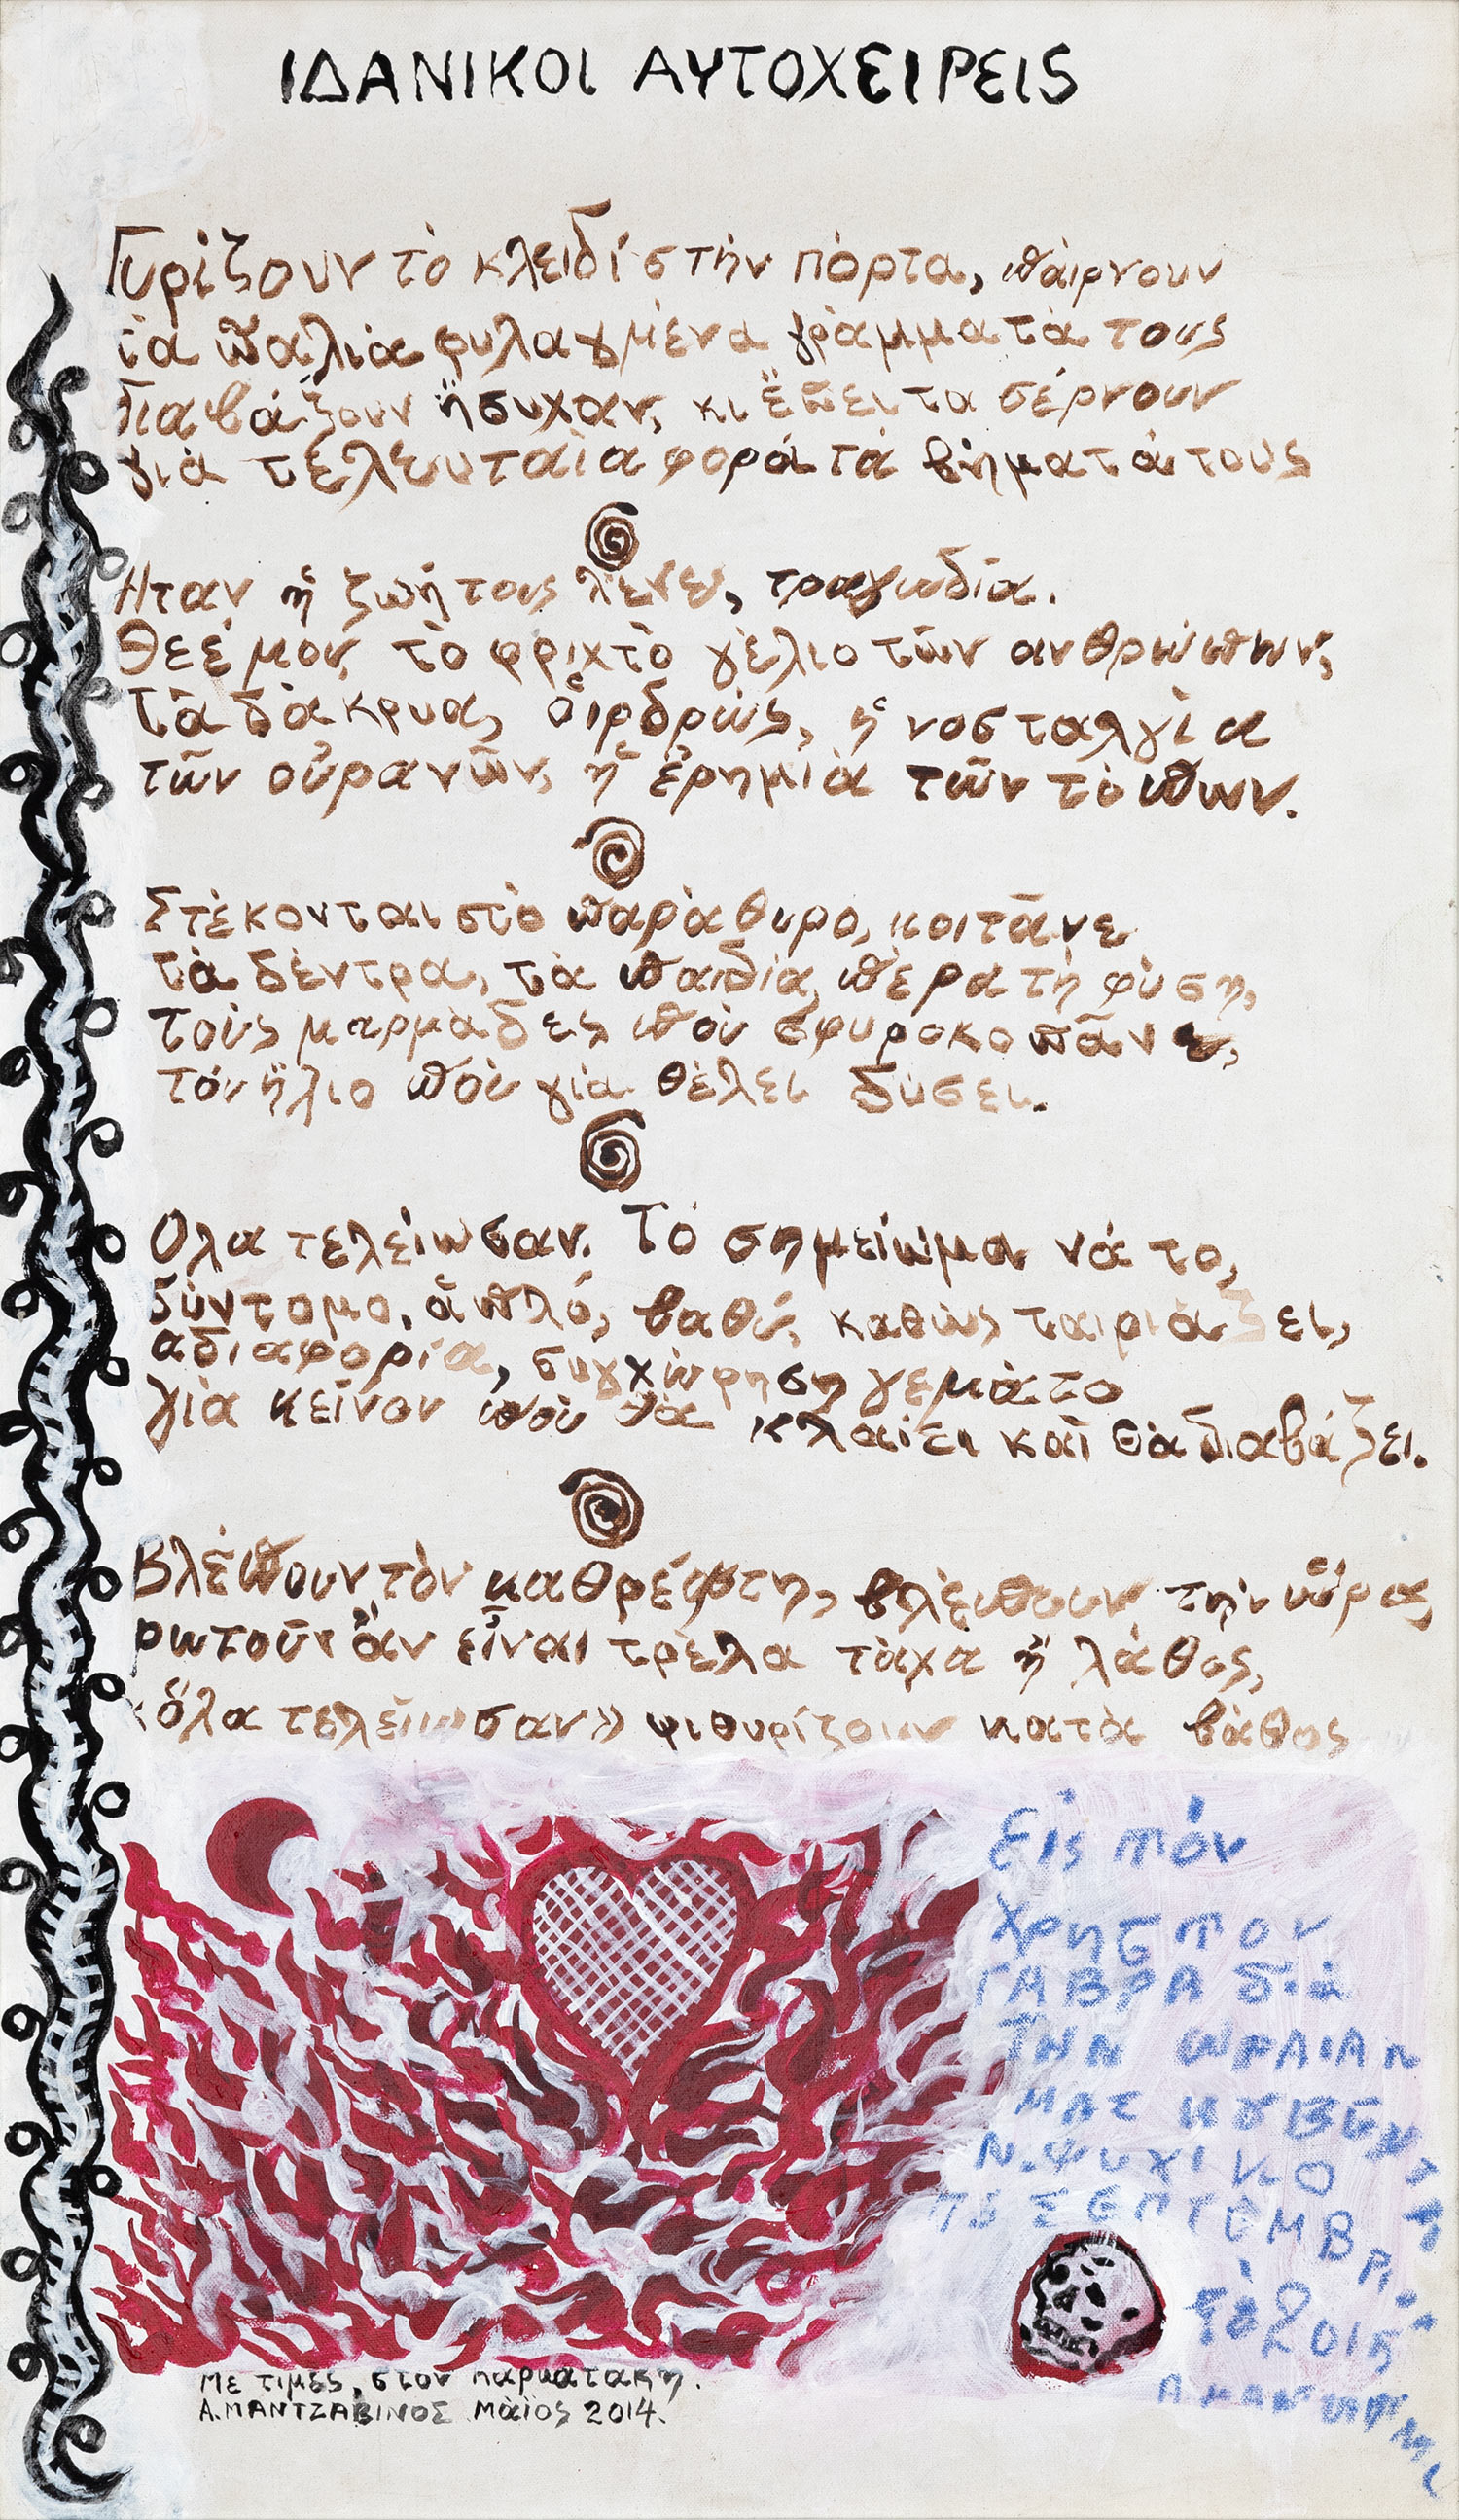 ΙΔΑΝΙΚΟΙ ΑΥΤΟΧΕΙΡΕΙΣ
Γυρίζουν τὸ κλειδί στὴν πόρτα, παίρνουν
τὰ παλιὰ φυλαγμένα γράμματά τους
διαβάζουν ἥσυχαν, κι ἔπειτα σέρνουν
γιὰ τελευταία φορά τὰ βήματά τους
Ηταν ἡ ζωή τους λένε, τραγωδία.
Θεέ μου, τὸ φριχτὸ γέλιο τῶν ανθρώπων,
τὰ δάκρυα, ὁ ιρδρώς, ἡ νοσταλγία
τῶν οὐρανῶν, ἡ ἐρημιὰ τῶν τόπων.
Στέκονται στὸ παράθυρο, κοιτᾶνε
τὰ δέντρα, τὰ παιδιά, πέρα τὴ φύση,
τοὺς μαρμάδες ποὺ σφυροκοπᾶνε,
τὸν ἥλιο ποὺ γιὰ θέλει δύσει.
Ολα τελείωσαν. Τὸ σημείωμα νά το,
σύντομο, ἁπλό, βαθύ, καθὼς ταιριάζει,
αδιαφορία, συγχώρηση γεμάτο
γιὰ κεῖνον ποὺ θὰ κλαίει καὶ θὰ διαβάζει.
Βλέπουν τὸν καθρέφτη, βλέπουν τὴν ὥρα,
ρωτοῦν ἂν εἶναι τρέλα τάχα ἢ λάθος,
«ὅλα τελείωσαν» ψιθυρίζουν κατὰ βάθος
Εἰς τὸν
Χρηστον
ΓΑΒΡΑ διὰ
ΤΗΝ ΩΡΑΙΑΝ
ΜΑΣ ΚΟΥΒΕΝΤΑ
Ν. ΨΥΧΙΚΟ
15 ΣΕΠΤΕΜΒΡΙΟΥ
2015
Με τιμές, στον Μαρκατάκη.
Α. ΜΑΝΤΖΑΒΙΝΟΣ Μάϊος 2014.